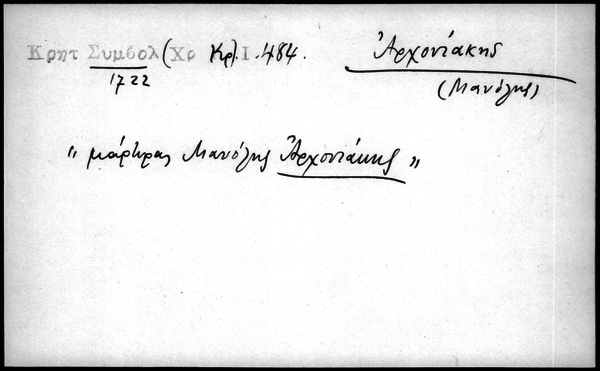 Κρητ Συμβολ (Χρ Κρ). Ι. 484. Ἀρχοντάκης
1722 (Μανόλης)
„ μάρτυρας Μανόλης Ἀρχοντάκης „